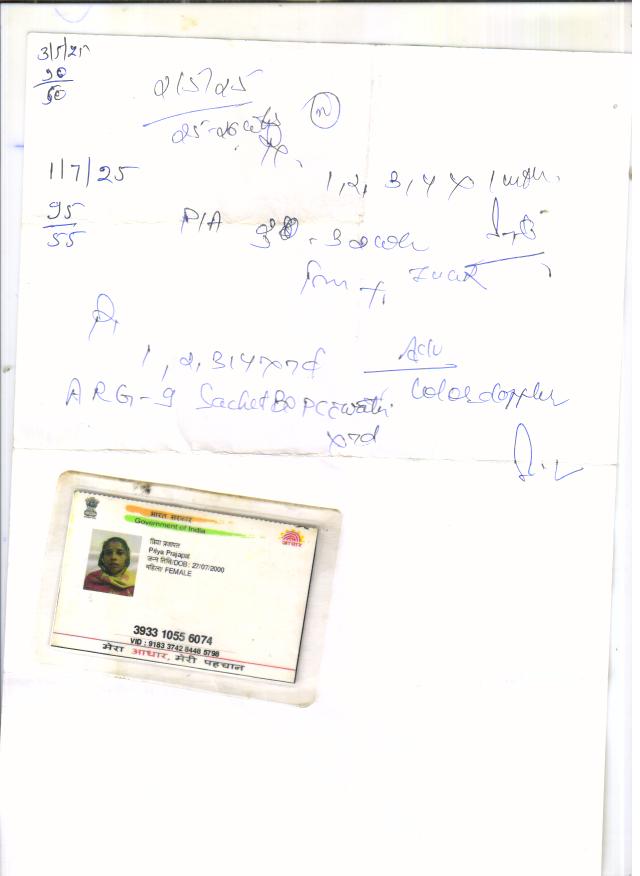 3/5/25
90
60
2/5/25
1/7/25
1, 2, 3, 4 x 1 mth.
95
55
P/A
Rx
1, 2, 3, 4 x 7d
Adv
ARG-9 Sachet BD PC c water
Color doppler
x 7d
भारत सरकार
Government of India
प्रिया प्रजापत
Priya Prajapat
जन्म तिथि/DOB: 27/07/2000
महिला/ FEMALE
आधार
3933 1055 6074
VID : 9183 3742 8448 5798
मेरा आधार, मेरी पहचान